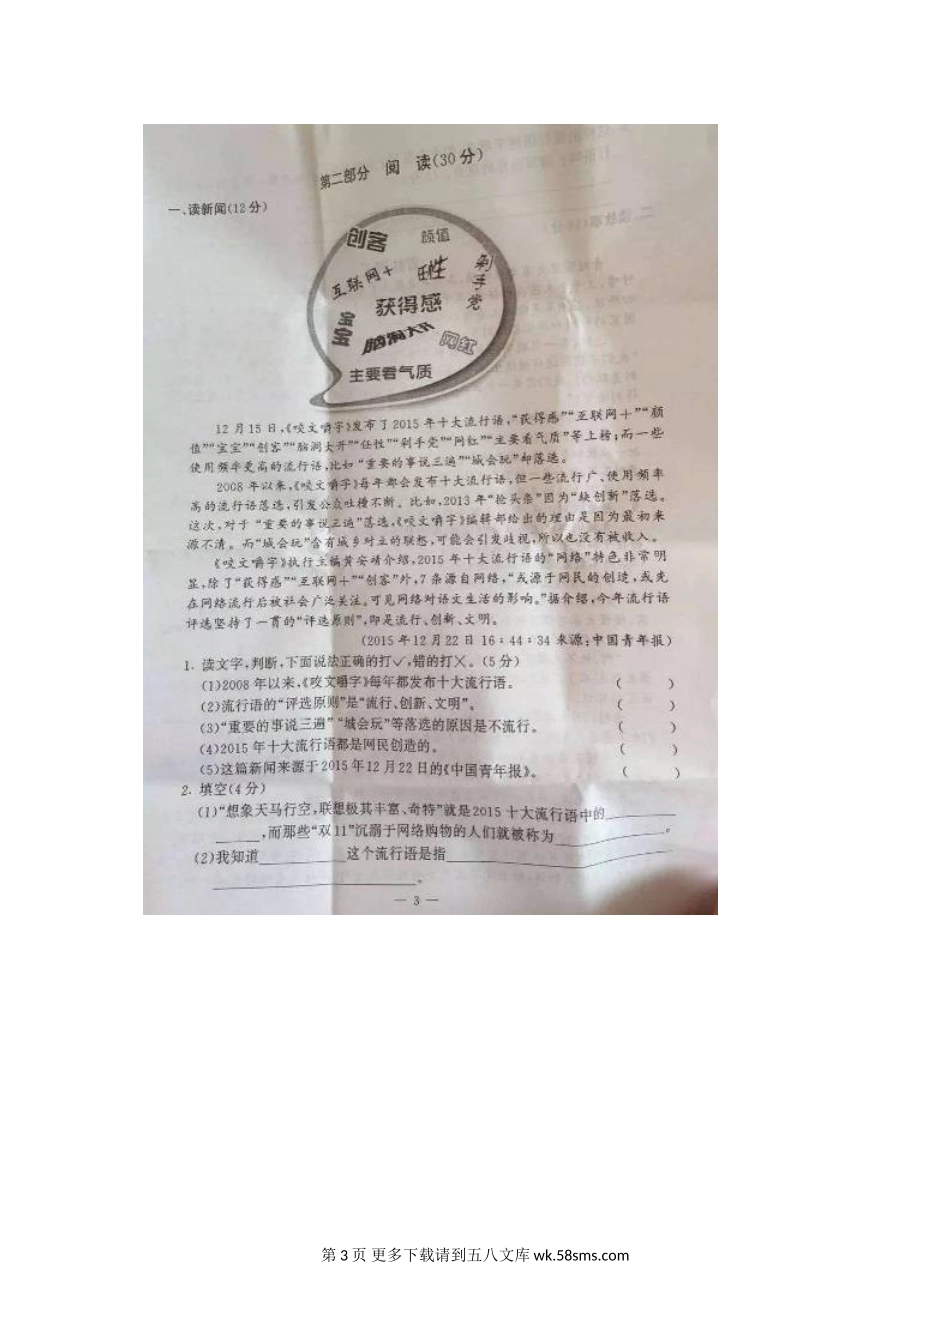 第二部分 阅 读(30分)
一、读新闻(12分)
创客 颜值
互联网＋ 任性 剁手党
获得感
宝宝 脑洞大开 网红
主要看气质
12月15日,《咬文嚼字》发布了2015年十大流行语,“获得感”“互联网＋”“颜
值”“宝宝”“创客”“脑洞大开”“任性”“剁手党”“网红”“主要看气质”等上榜;而一些
使用频率更高的流行语,比如“重要的事说三遍”“城会玩”却落选。
2008年以来,《咬文嚼字》每年都会发布十大流行语,但一些流行广、使用频率
高的流行语落选,引发公众吐槽不断。比如,2013年“抢头条”因为“缺创新”落选。
这次,对于“重要的事说三遍”落选,《咬文嚼字》编辑部给出的理由是因为最初来
源不清。而“城会玩”含有城乡对立的联想,可能会引发歧视,所以也没有被收入。
《咬文嚼字》执行主编黄安靖介绍,2015年十大流行语的“网络”特色非常明
显,除了“获得感”“互联网＋”“创客”外,7条源自网络,“或源于网民的创造,或先
在网络流行后被社会广泛关注。可见网络对语文生活的影响。”据介绍,今年流行语
评选坚持了一贯的“评选原则”,即是流行、创新、文明。
(2015年12月22日16:44:34来源:中国青年报)
1. 读文字,判断,下面说法正确的打✓,错的打╳。(5分)
(1)2008年以来,《咬文嚼字》每年都发布十大流行语。 ( )
(2)流行语的“评选原则”是“流行、创新、文明”。 ( )
(3)“重要的事说三遍”“城会玩”等落选的原因是不流行。 ( )
(4)2015年十大流行语都是网民创造的。 ( )
(5)这篇新闻来源于2015年12月22日的《中国青年报》。 ( )
2. 填空(4分)
(1)“想象天马行空,联想极其丰富、奇特”就是2015十大流行语中的________
_____,而那些“双11”沉溺于网络购物的人们就被称为____________。
(2)我知道__________这个流行语是指__________________________
________________________。
— 3 —
第 3 页 更多下载请到五八文库 wk.58sms.com